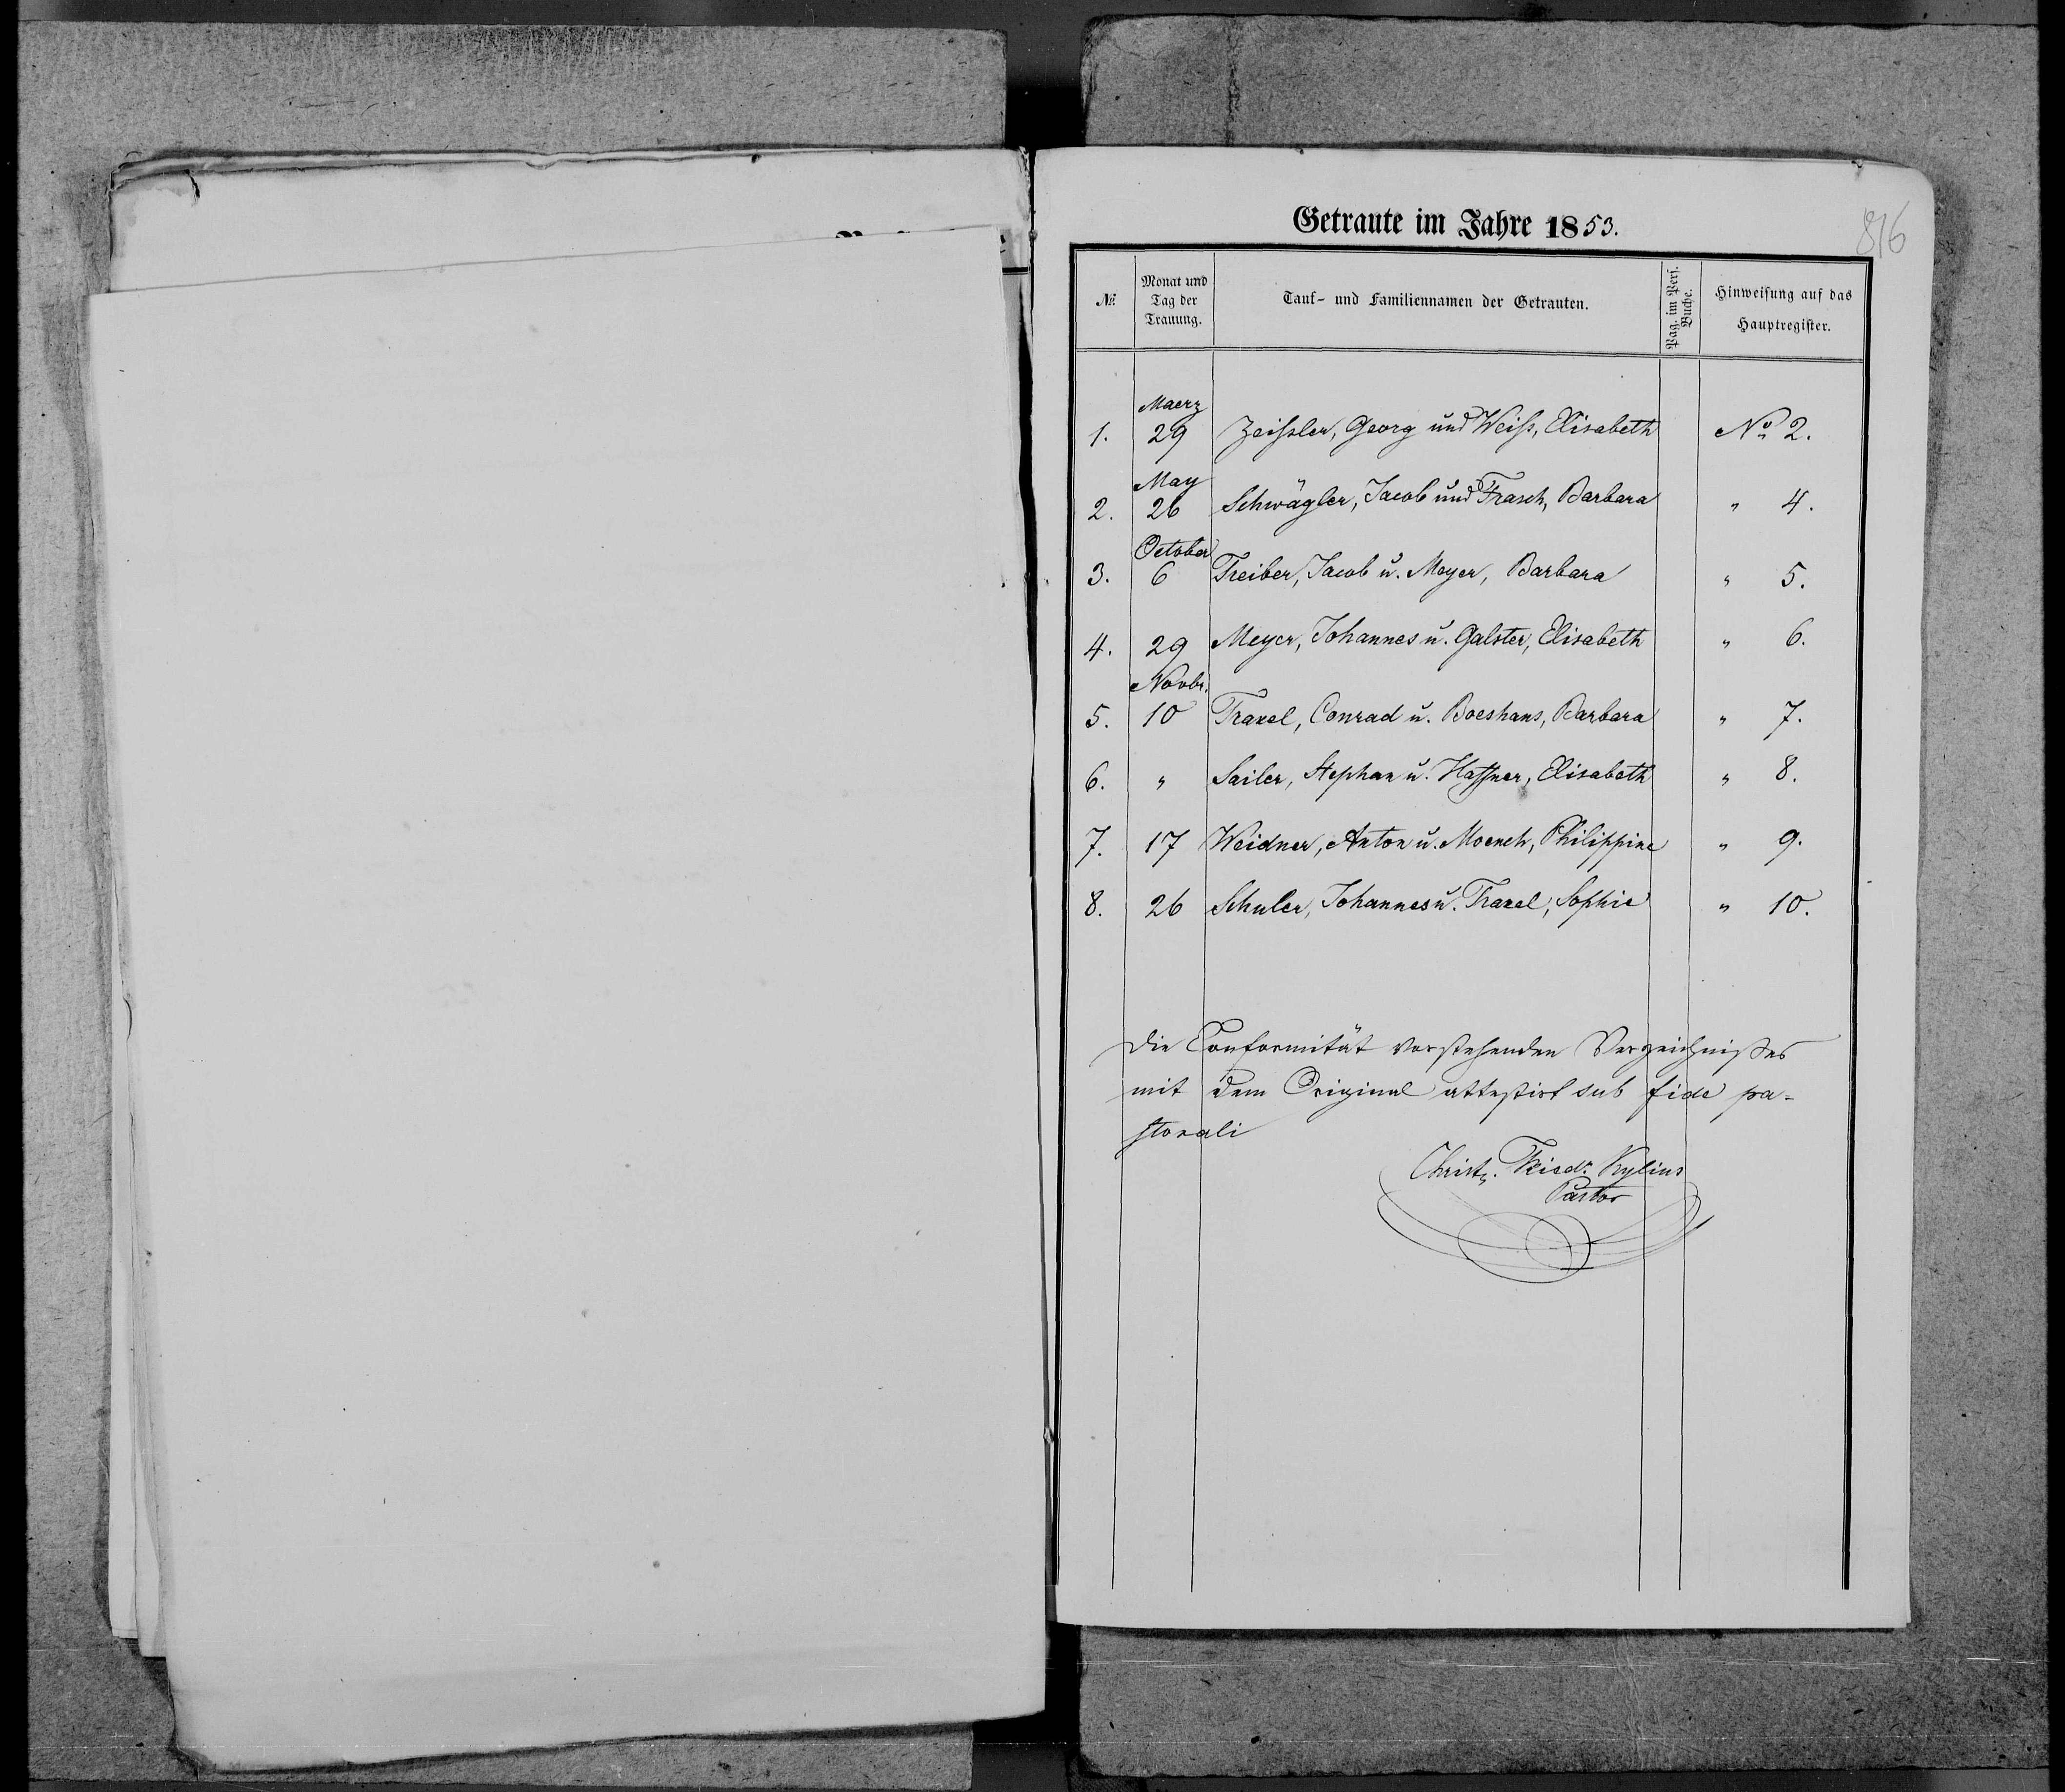 Getraute im Jahre 1853.
816
№ Monat und Tag der Trauung. Tauf- und Familiennamen der Getrauten. Pag. im Pers. Buche. Hinweisung auf das Hauptregister.
Maerz
1. 29 Zeißler, Georg und Weiß, Elisabeth No 2.
May
2. 26 Schwägler, Jacob und Frasch, Barbara " 4.
October
3. 6 Treiber, Jacob u. Meyer, Barbara " 5.
4. 29 Meyer, Johannes u. Galster, Elisabeth " 6.
Novbr.
5. 10 Traxel, Conrad u. Boeshans, Barbara " 7.
6. " Sailer, Stephan u. Haffner, Elisabeth " 8.
7. 17 Weidner, Anton u. Moench, Philippine " 9.
8. 26 Schuler, Johannes u. Traxel, Sophie " 10.
Die Conformität vorstehenden Verzeichnißes
mit dem Original attestirt sub fide pa-
storali
Christn. Friedr. Kylius
Pastor